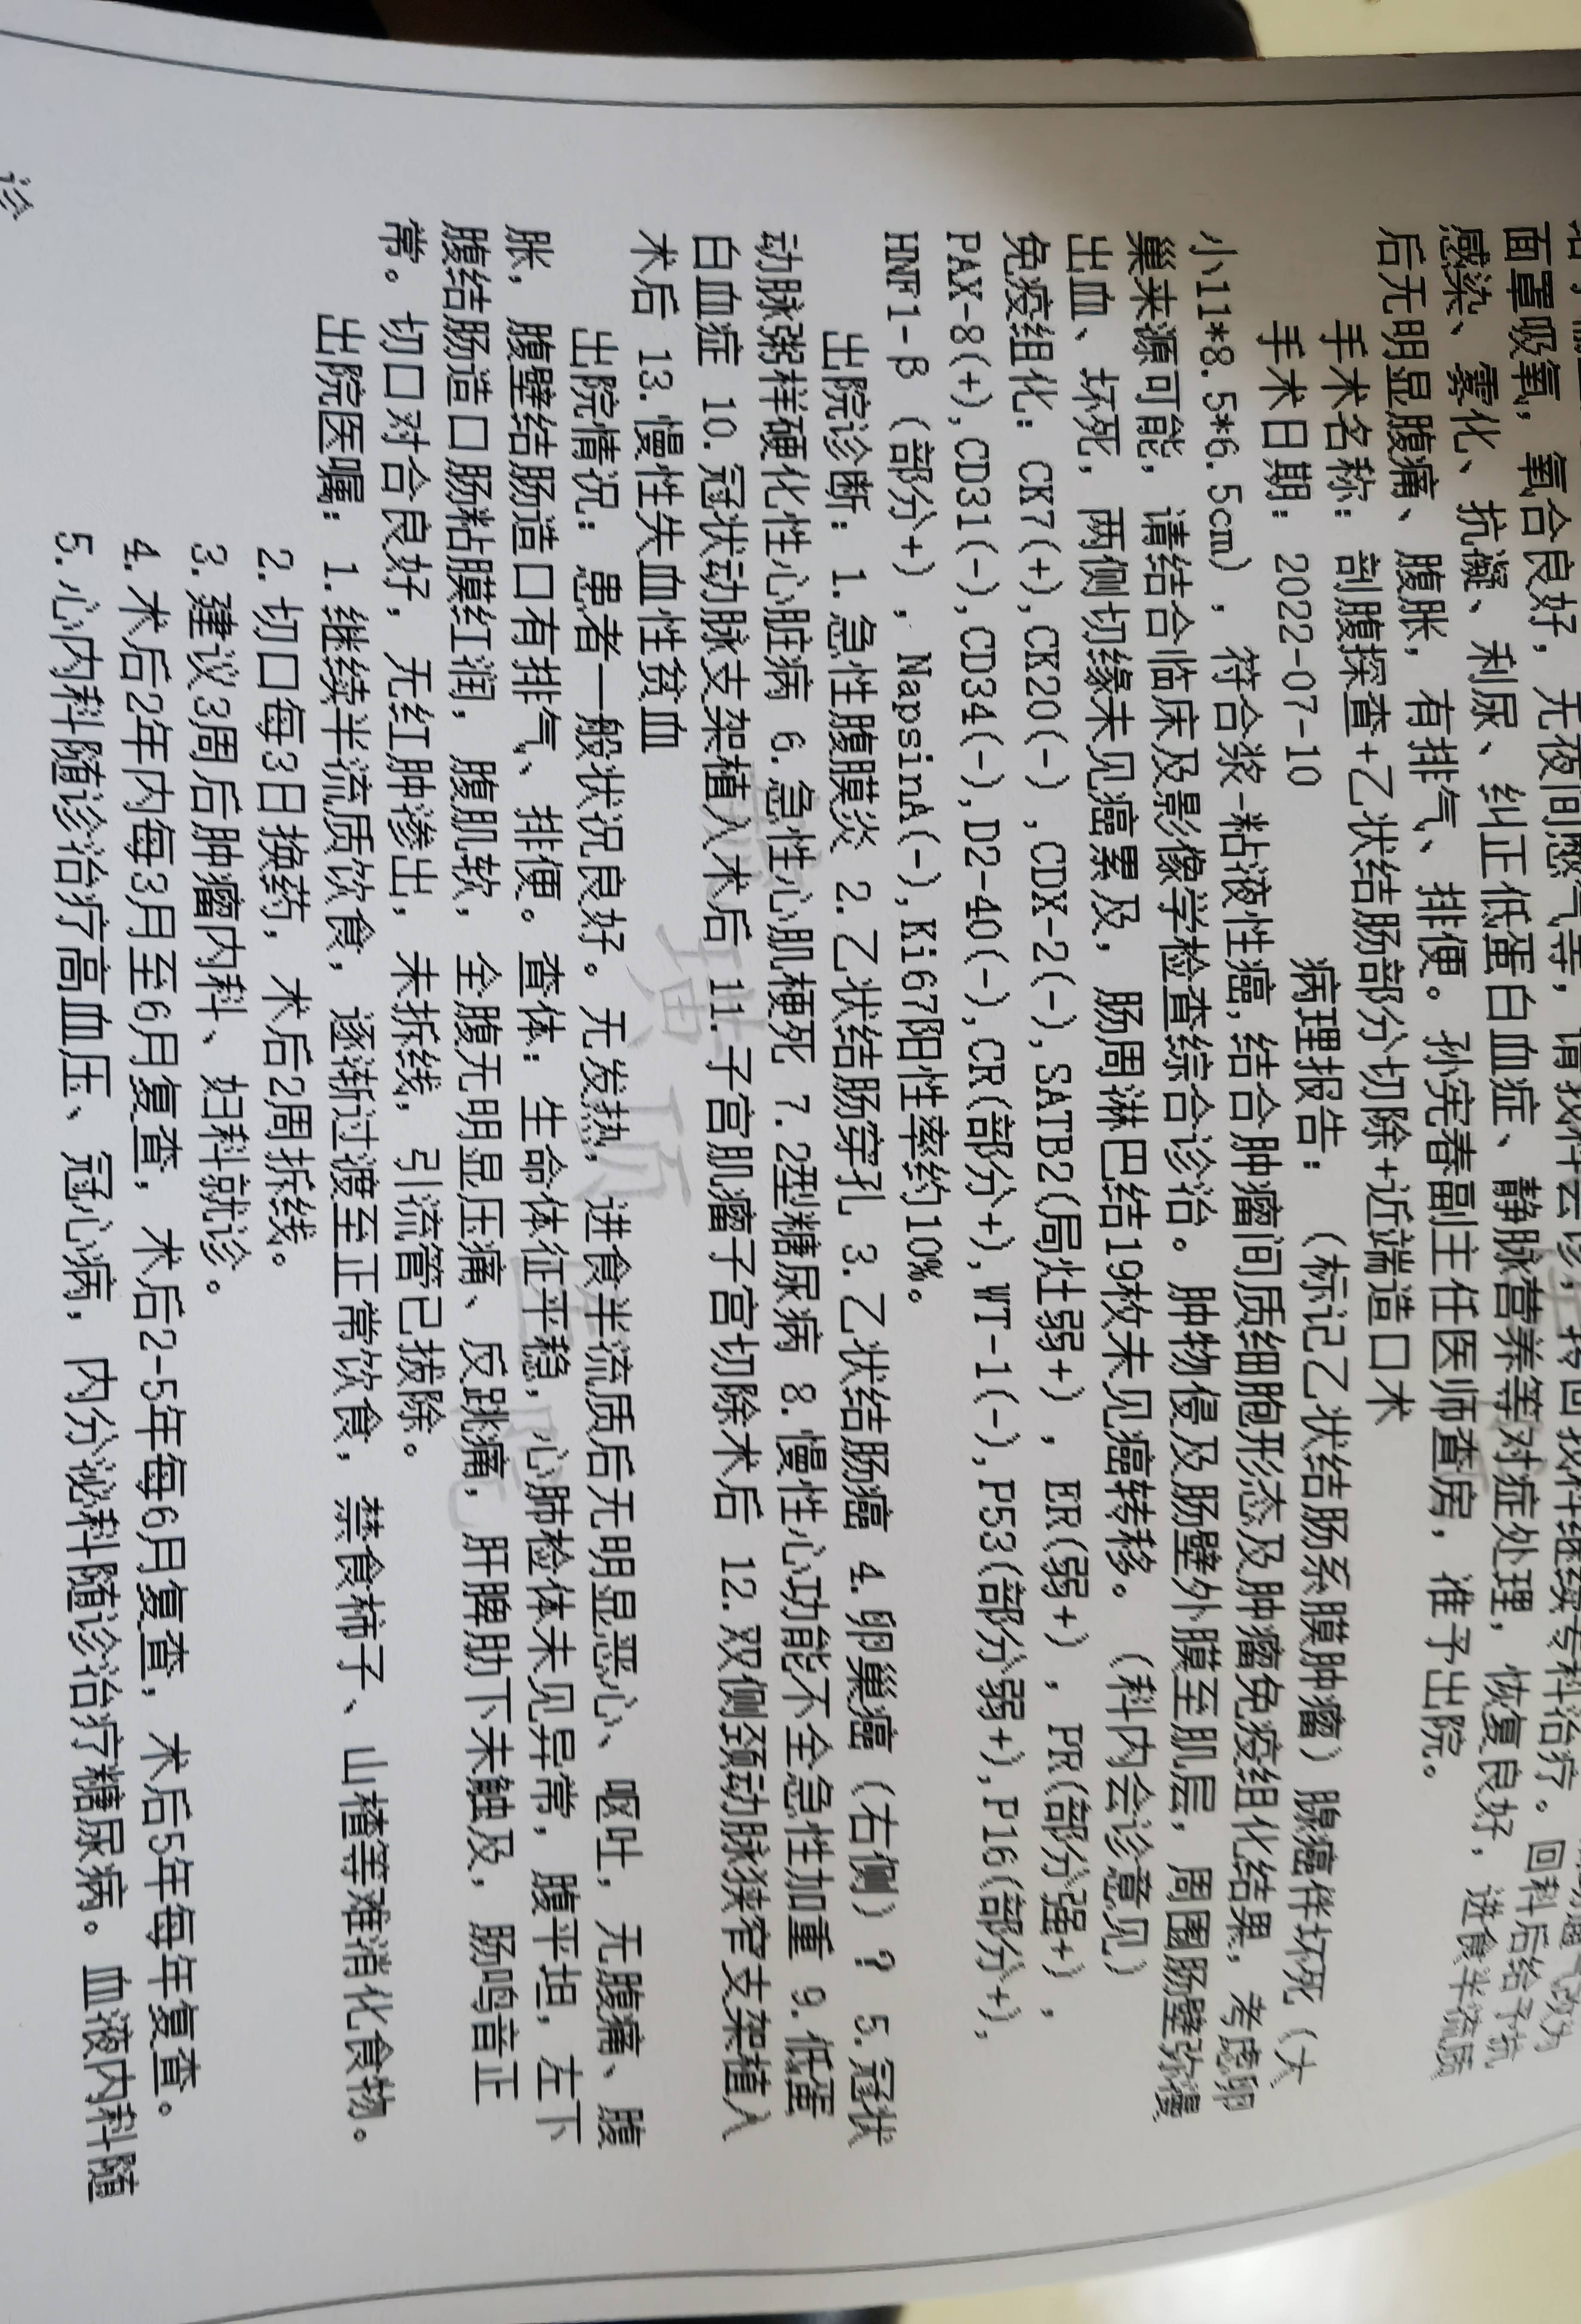 面罩吸氧，氧合良好，无夜间憋气等，请我科会诊，转回我科继续专科治疗。回科后给予抗
感染、雾化、抗凝、利尿、纠正低蛋白血症、静脉营养等对症处理，恢复良好，进食半流质
后无明显腹痛、腹胀，有排气、排便。孙宪春副主任医师查房，准予出院。
手术名称：剖腹探查+乙状结肠部分切除+近端造口术
手术日期：2022-07-10 病理报告：（标记乙状结肠系膜肿瘤）腺癌伴坏死（大
小11*8.5*6.5cm），符合浆-粘液性癌,结合肿瘤间质细胞形态及肿瘤免疫组化结果，考虑卵
巢来源可能，请结合临床及影像学检查综合诊治。肿物侵及肠壁外膜至肌层，周围肠壁弥漫
出血、坏死，两侧切缘未见癌累及，肠周淋巴结19枚未见癌转移。（科内会诊意见）
免疫组化：CK7(+),CK20(-) ,CDX-2(-),SATB2(局灶弱+) ，ER(弱+) ，PR(部分强+)，
PAX-8(+),CD31(-),CD34(-),D2-40(-),CR(部分+),WT-1(-),P53(部分弱+),P16(部分+),
HNF1-β（部分+），NapsinA(-),Ki67阳性率约10%。
出院诊断：1.急性腹膜炎 2.乙状结肠穿孔 3.乙状结肠癌 4.卵巢癌（右侧）? 5.冠状
动脉粥样硬化性心脏病 6.急性心肌梗死 7.2型糖尿病 8.慢性心功能不全急性加重 9.低蛋
白血症 10.冠状动脉支架植入术后 11.子宫肌瘤子宫切除术后 12.双侧颈动脉狭窄支架植入
术后 13.慢性失血性贫血
出院情况：患者一般状况良好。无发热，进食半流质后无明显恶心、呕吐，无腹痛、腹
胀，腹壁结肠造口有排气、排便。查体：生命体征平稳，心肺检体未见异常，腹平坦，左下
腹结肠造口肠粘膜红润，腹肌软，全腹无明显压痛、反跳痛，肝脾肋下未触及，肠鸣音正
常。切口对合良好，无红肿渗出，未拆线，引流管已拔除。
出院医嘱：1.继续半流质饮食，逐渐过渡至正常饮食，禁食柿子、山楂等难消化食物。
2.切口每3日换药，术后2周拆线。
3.建议3周后肿瘤内科、妇科就诊。
4.术后2年内每3月至6月复查，术后2-5年每6月复查，术后5年每年复查。
5.心内科随诊治疗高血压、冠心病，内分泌科随诊治疗糖尿病。血液内科随
诊